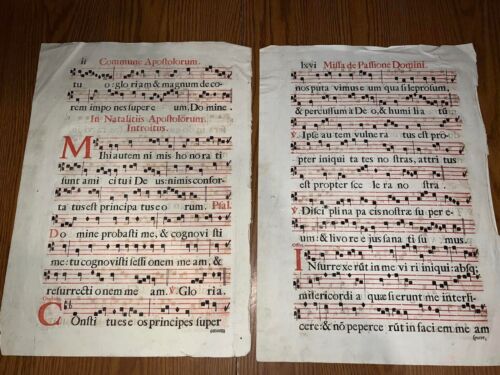 ii Commune Apostolorum.
tu o: gloriam & magnum deco
rem impo nes super e um. Domine.
In Natalitiis Apostolorum.
Introitus.
Mihi autem ni mis ho no ra ti
sunt ami ci tui De us: nimis confor-
ta tus est principa tus e o rum. Psal.
Do mine probasti me, & cognovi sti
me: tu cognovisti sessi onem me am, &
resurrecti o nem me am. ℣. Glo ria.
Consti tu es e os principes super
omnem
lxvi Missa de Passione Domini.
nos puta vimus e um qua si leprosum,
& percussum à De o, & humi lia tũ
℣. Ipse au tem vulnera tus est pro-
pter iniqui ta tes no stras, attri tus
est propter sce le ra no stra.
℣. Disci pli na pa cis nostræ super e-
um: & livo re e jus sana ti su mus.
Insurre xe rũt in me vi ri iniqui: absq;
misericordi a quæ si erunt me interfi-
cere: & nõ peperce rũt in faci em me am
spuere,